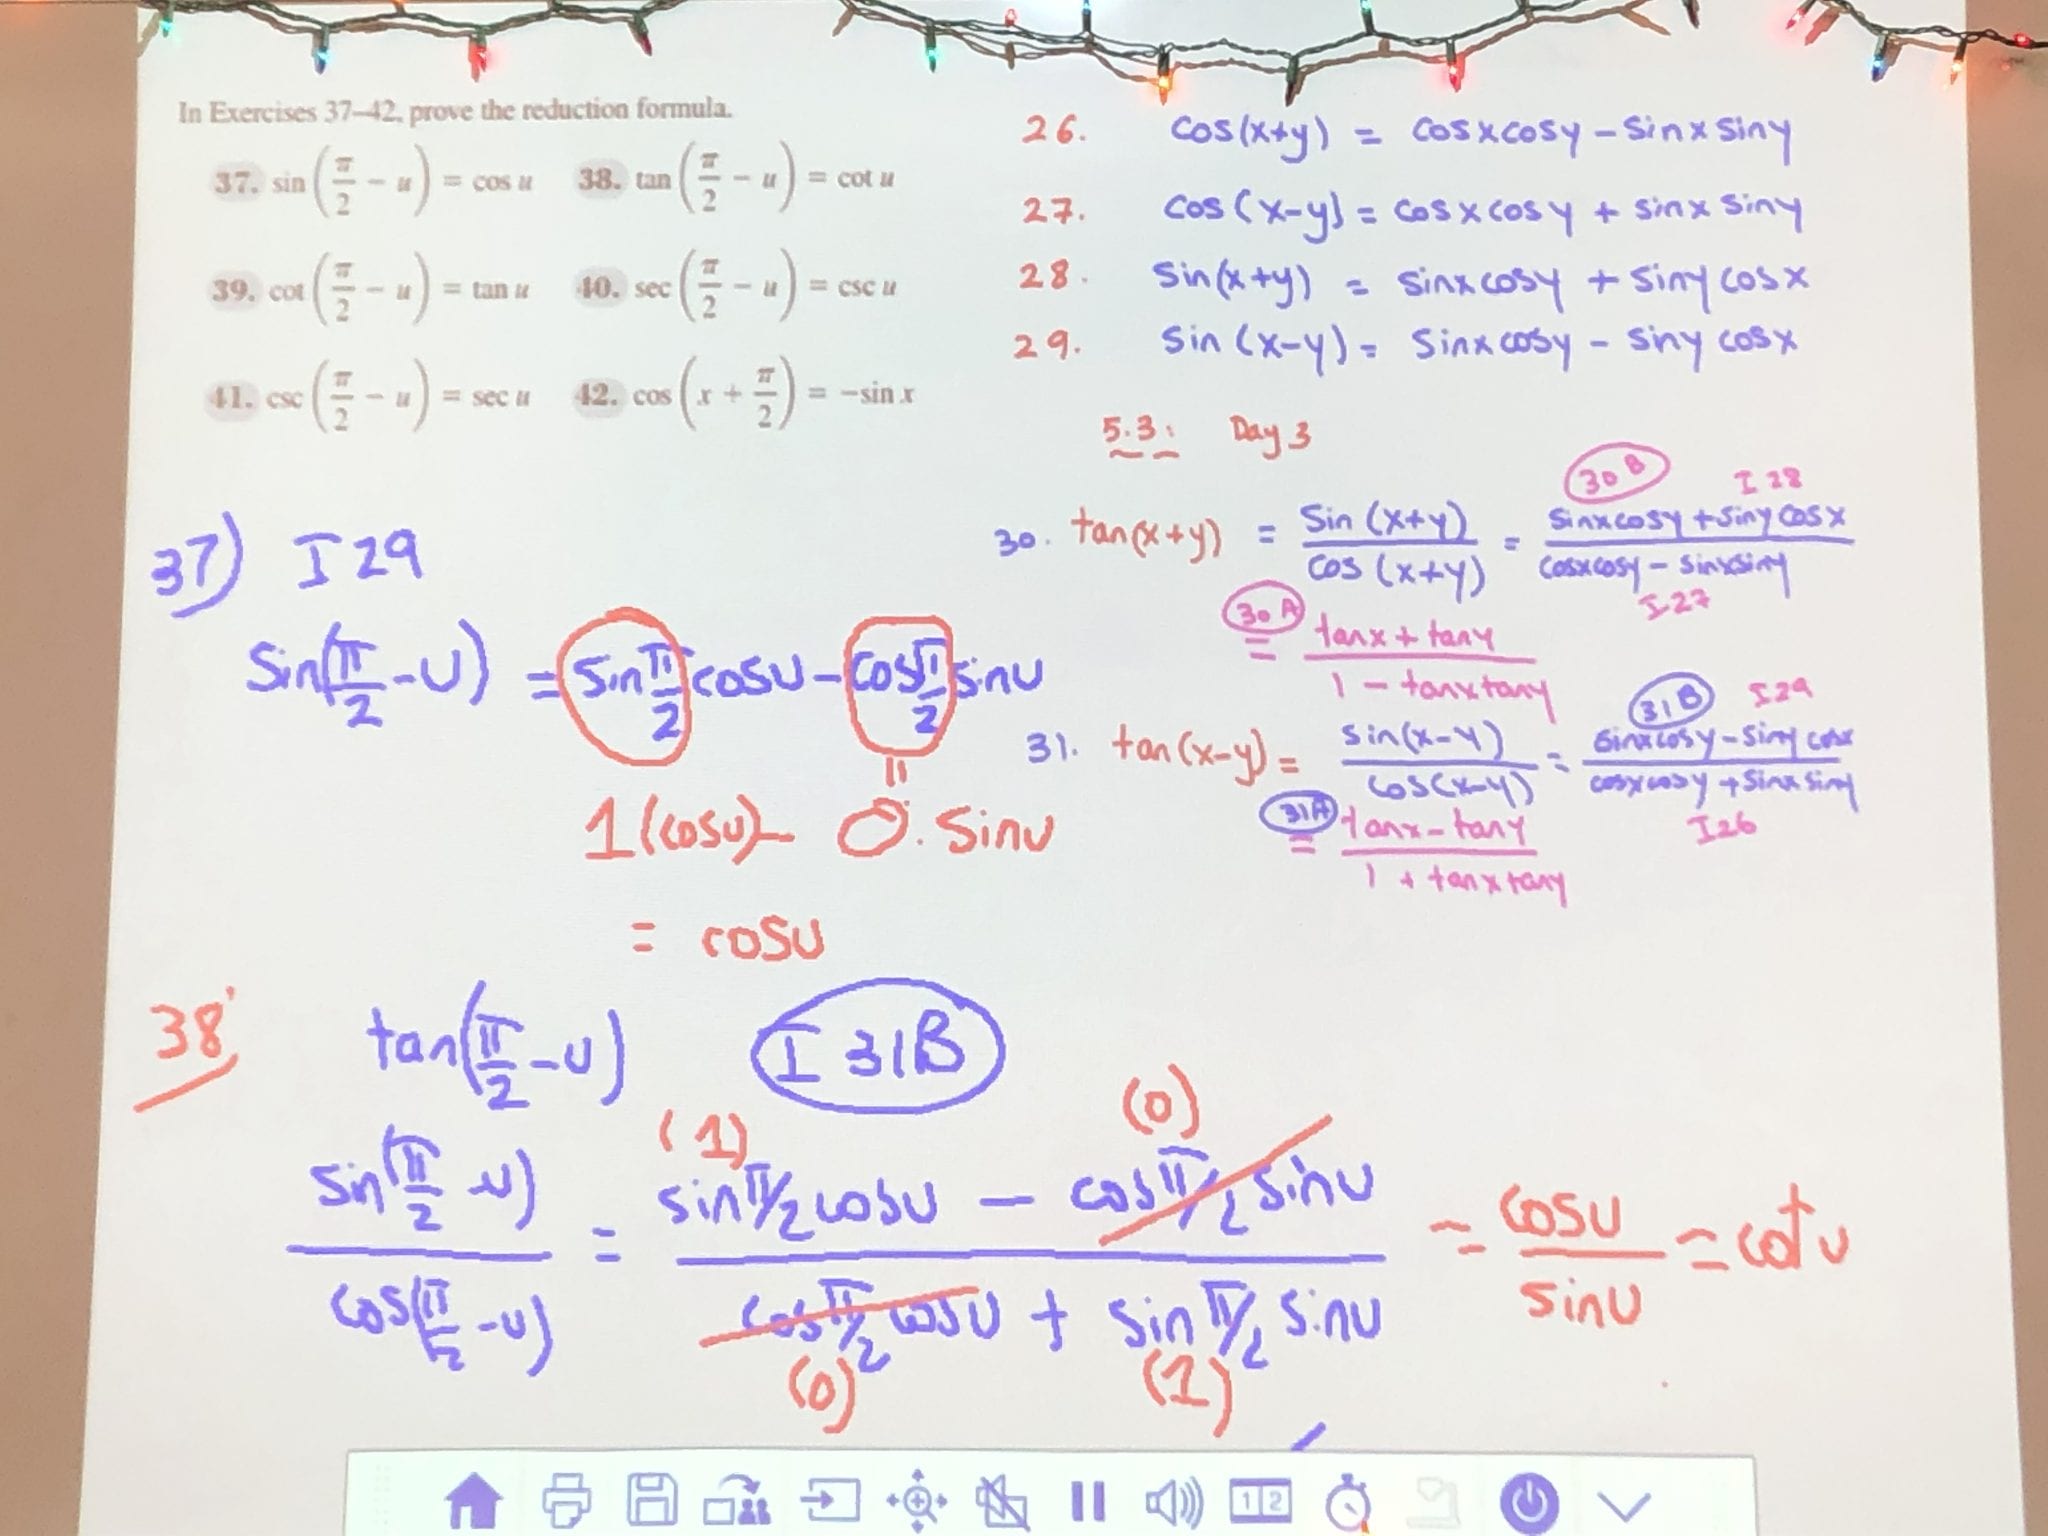 In Exercises 37–42, prove the reduction formula.
37. sin (π/2 − u) = cos u 38. tan (π/2 − u) = cot u
39. cot (π/2 − u) = tan u 40. sec (π/2 − u) = csc u
41. csc (π/2 − u) = sec u 42. cos (x + π/2) = −sin x
26. cos(x+y) = cosxcosy − sinx siny
27. cos (x−y) = cosxcosy + sinx siny
28. sin(x+y) = sinxcosy + siny cosx
29. sin (x−y) = sinxcosy − siny cosx
5.3: Day 3
30. tan(x+y) = sin (x+y) / cos (x+y) = sinxcosy + siny cosx / cosxcosy − sinxsiny
30B I 28
I 27
30A = tanx + tany / 1 − tanxtany
31. tan (x−y) = sin(x−y) / cos(x−y) = sinxcosy − siny cosx / cosxcosy + sinx siny
31B I29
I26
31A = tanx − tany / 1 + tanxtany
37) I 29
sin(π/2 − u) = sin π/2 cosu − cos π/2 sinu
1(cosu) − 0 · sinu
= cosu
38 tan(π/2 − u) I 31B
(1) (0)
sin(π/2 − u) / cos(π/2 − u) = sin π/2 cosu − cos π/2 sinu / cos π/2 cosu + sin π/2 sinu = cosu / sinu = cot u
(0) (1)
1 2